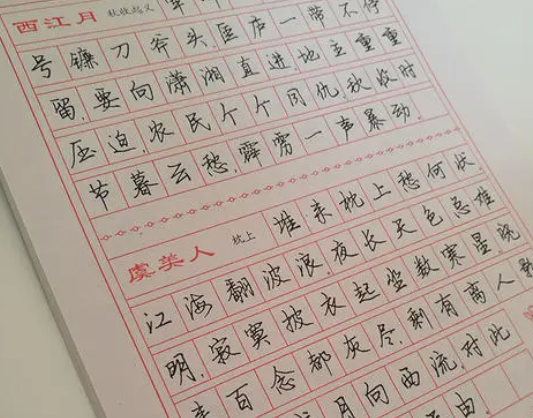 西江月 秋收起义
号镰刀斧头.匡庐一带不停
留.要向潇湘直进 地主重重
压迫.农民个个同仇.秋收时
节暮云愁.霹雳一声暴动.
虞美人 枕上 堆来枕上愁何状.
江海翻波浪.夜长天色总难
明.寂寞披衣起坐数寒星.晓
来百念都灰尽.剩有离人影
月向西流.对此
由